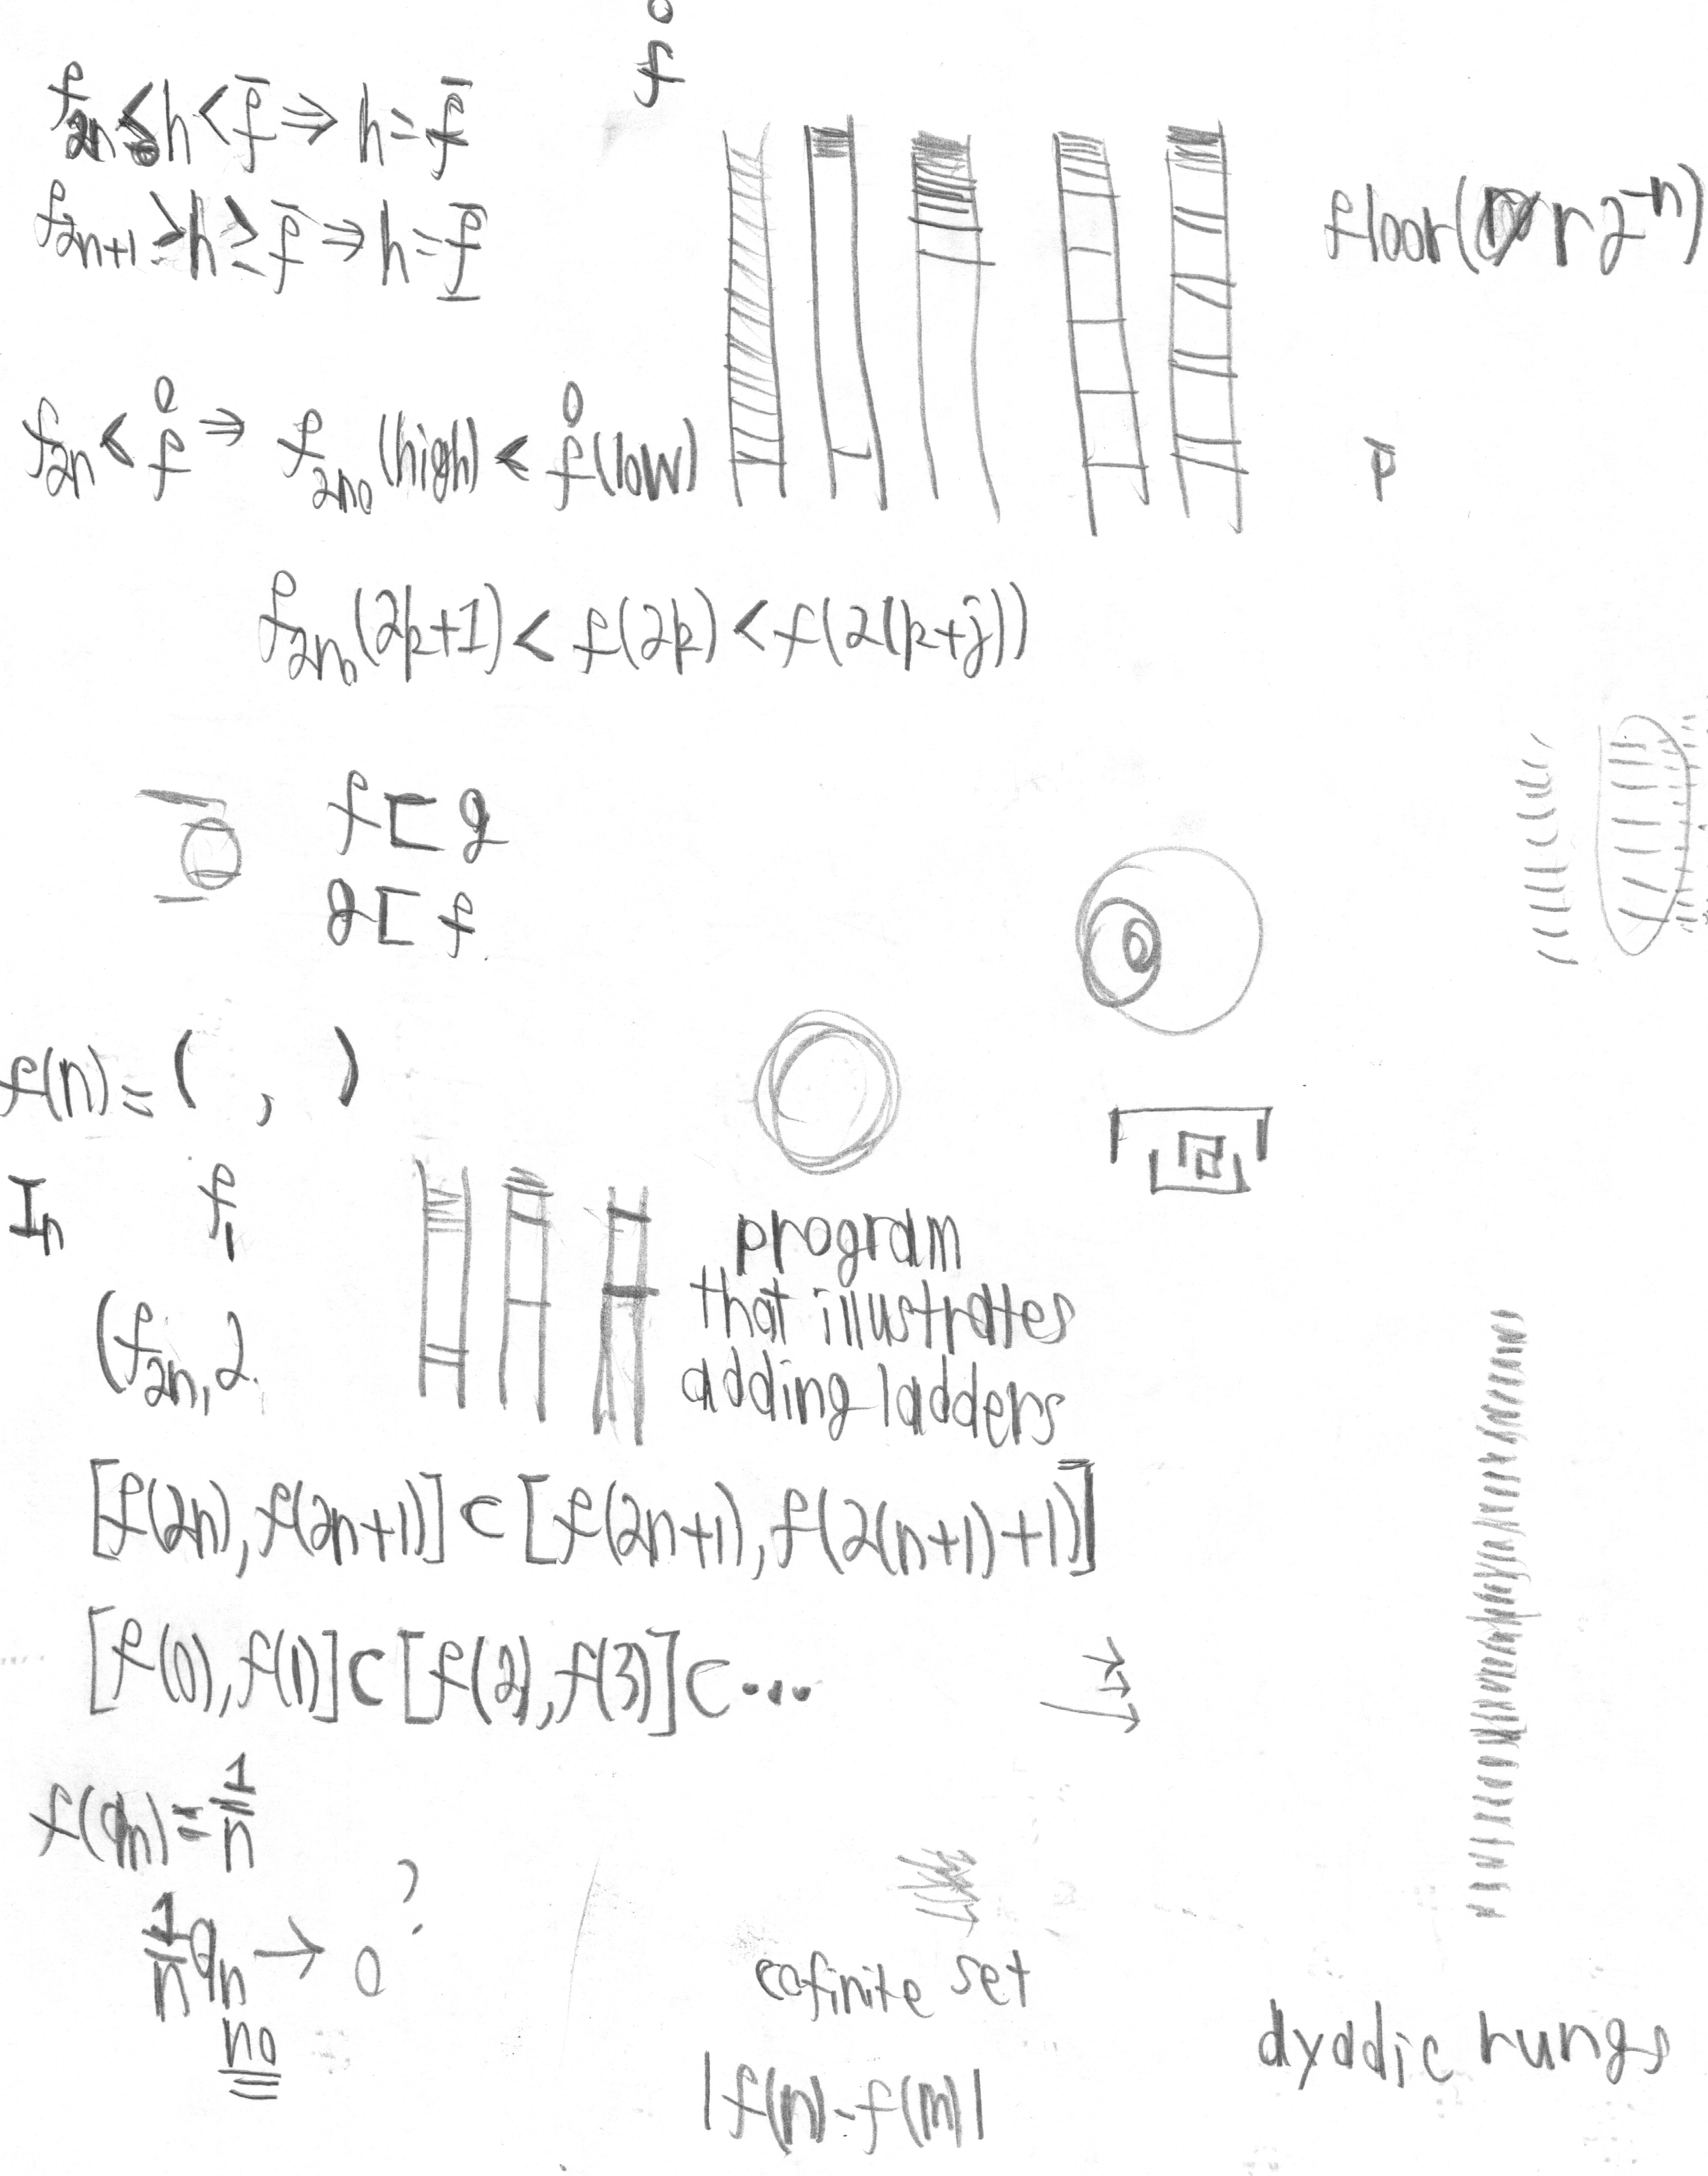 f̊
f₂ₙ ≤ h < f̄ ⇒ h = f̄
f₂ₙ₊₁ > h ≥ f̄ ⇒ h = f̲̄
floor( r 2⁻ⁿ)
f₂ₙ < f̊ ⇒ f₂ₙ₀(high) < f̊(low)
f₂ₙ₀(2k+1) < f(2k) < f(2(k+j))
f ⊏ g
g ⊏ f
f(n) = ( , )
Iₙ f₁
program
that illustrates
adding ladders
(f₂ₙ, 2.
[f(2n), f(2n+1)] ⊂ [f(2n+1), f(2(n+1)+1)]
[f(0), f(1)] ⊂ [f(2), f(3)] ⊂ ...
f(qₙ) = 1/n
1/n qₙ → 0 ?
no
cofinite set
dyadic rungs
|f(n) - f(m)|